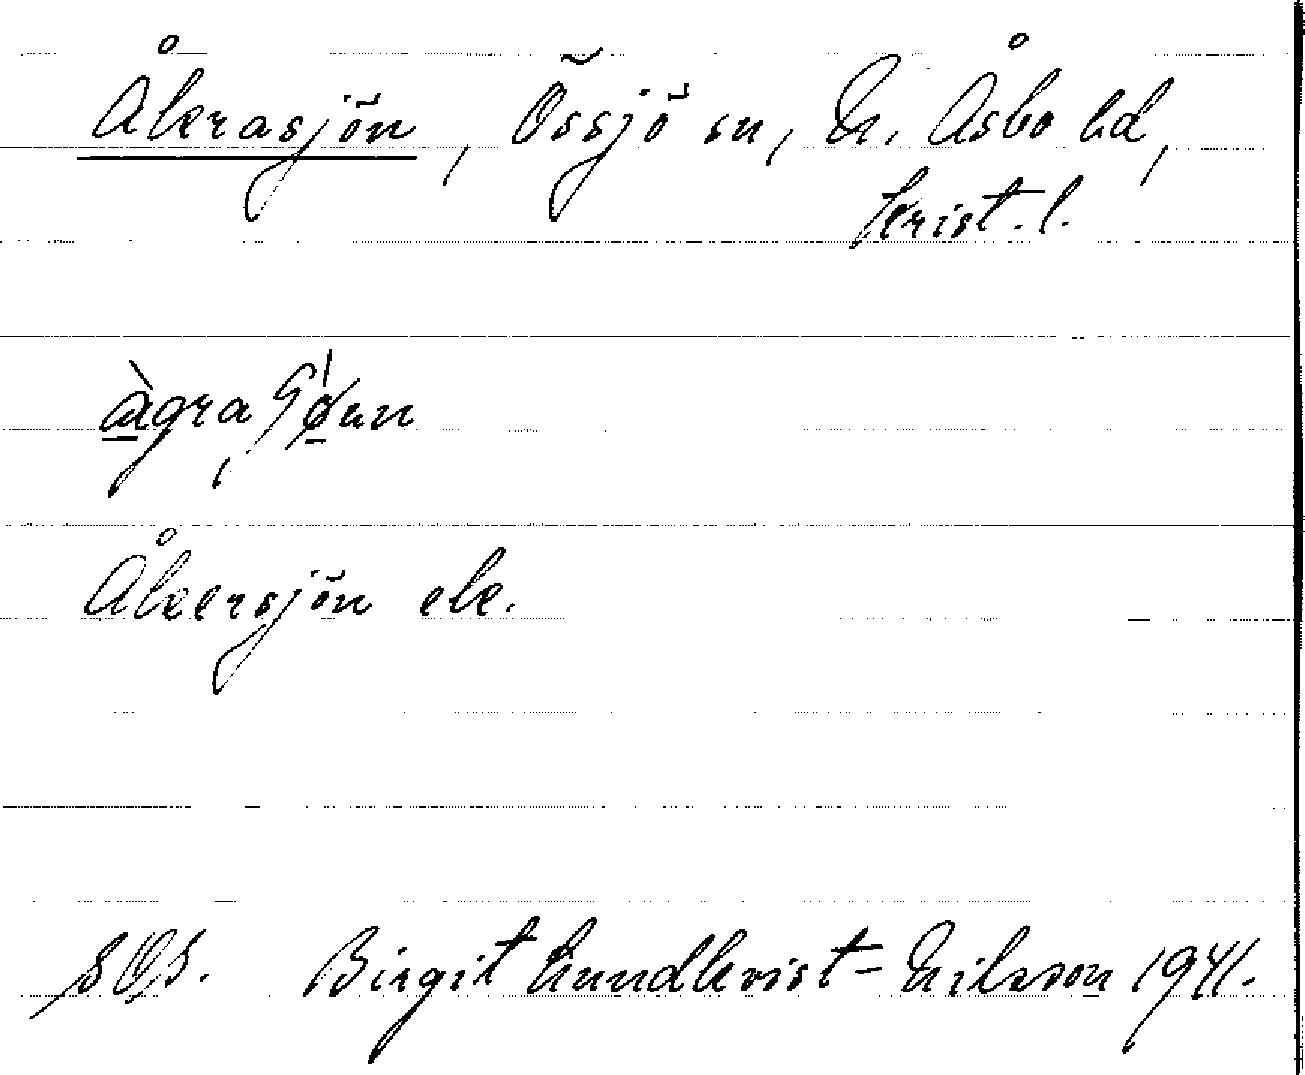 Åkrasjön, Össjö sn, N. Åsbo hd,
Krist. l.
Åkersjön ek.
Birgit Lundkvist-Nilsson 1941.